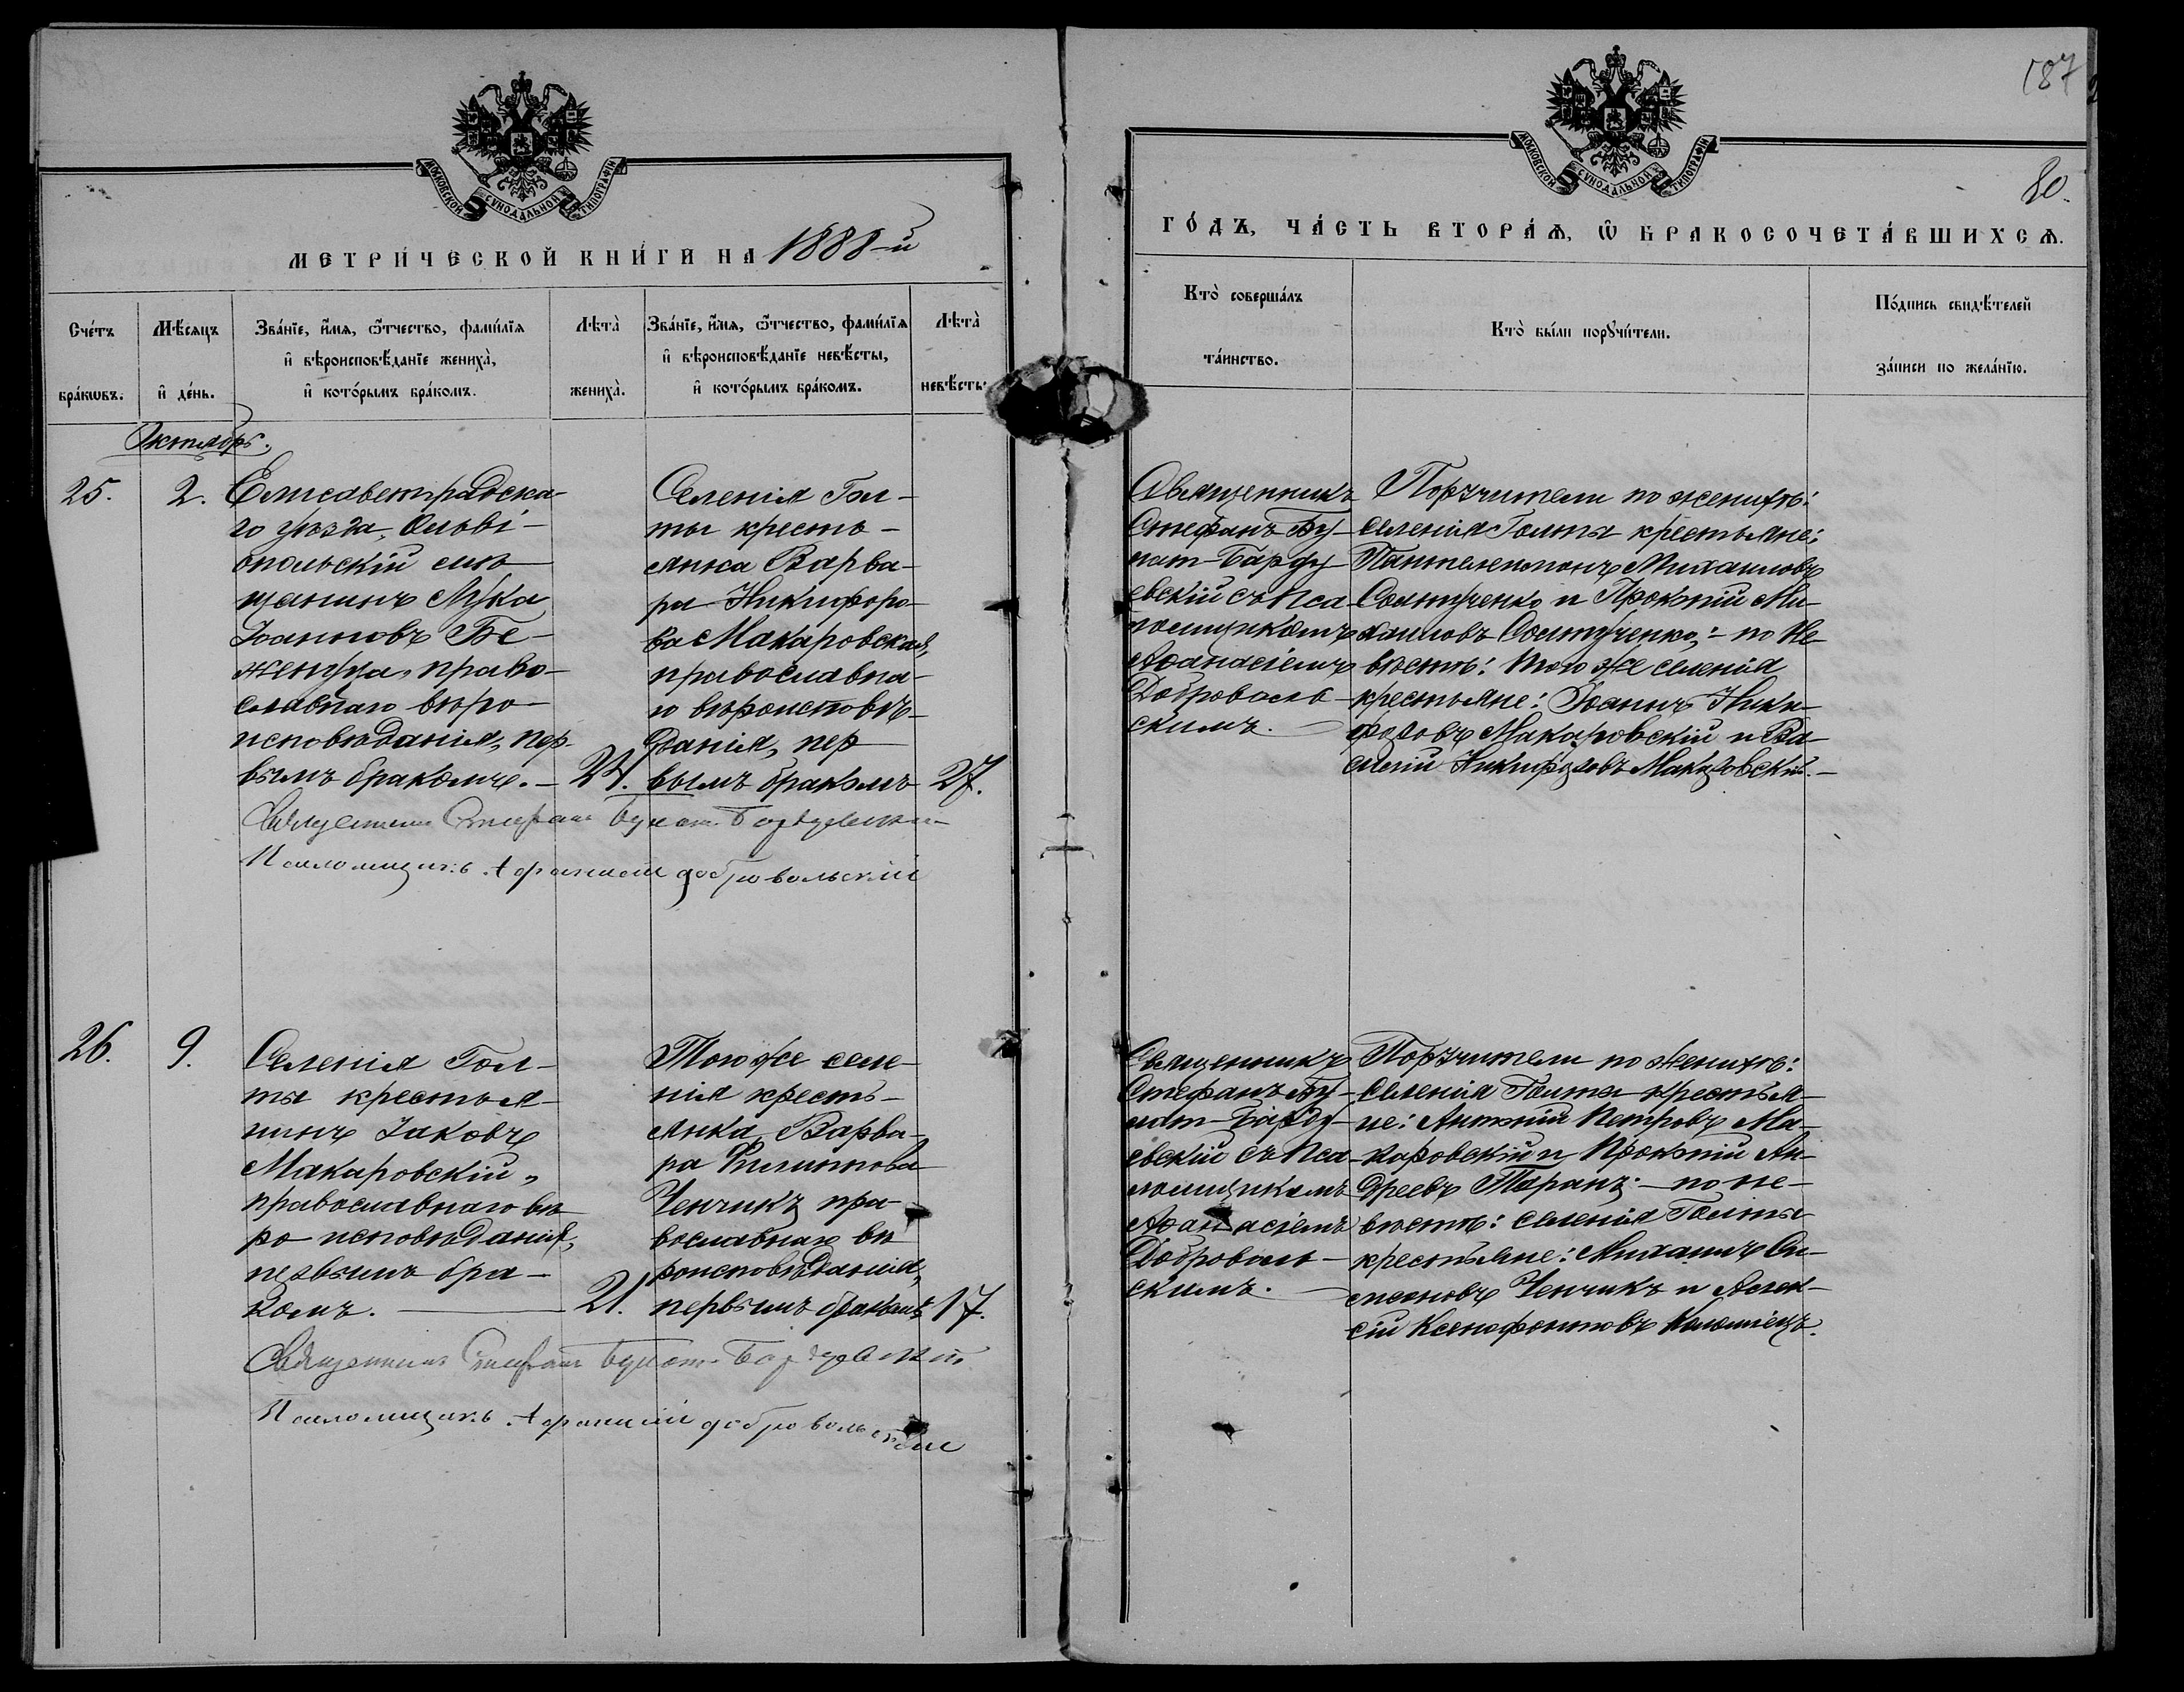 187
80.
МОСКОВСКОЙ СѴНОДАЛЬНОЙ ТИПОГРАФІИ
МОСКОВСКОЙ СѴНОДАЛЬНОЙ ТИПОГРАФІИ
МЕТРИ́ЧЕСКОЙ КНИ́ГИ НА 1888-й
ГО́ДЪ, ЧА́СТЬ ВТОРА́Ѧ, Ѽ БРАКОСОЧЕТА́ВШИХСѦ.
Сче́тъ бра́кѡвъ.
Мѣ́сѧцъ и҆ де́нь.
Зва́нїе, и҆́мѧ, ѻ҆́тчество, фами́лїѧ
и҆ вѣроисповѣ́данїе жениха̀,
и҆ кото́рымъ бра́комъ.
Лѣта̀ жениха̀.
Зва́нїе, и҆́мѧ, ѻ҆́тчество, фами́лїѧ
и҆ вѣроисповѣ́данїе невѣ́сты,
и҆ кото́рымъ бра́комъ.
Лѣта̀ невѣ́сты.
Кто̀ соверша́лъ
та́инство.
Кто̀ бы́ли порꙋчи́тели.
По́дпись свидѣ́телей
за́писи по жела́нїю.
Октябрь.
25.
2.
Елисаветградска-
го уѣзда, Ольві-
опольскій мѣ-
щанинъ Лука
Іоанновъ Бе-
православнаго вѣро-
исповѣданія, пер-
вымъ бракомъ. — 24.
Селенія Гол-
ты кресть-
янка Варва-
ра Никифоро-
ва Макаровская,
православна-
го вѣроисповѣ-
данія, пер
вымъ бракомъ 27.
Священникъ
Стефанъ Бу-
лат-Барду-
евскій съ Пса-
ломщикомъ
Аѳанасіемъ
Доброволь-
скимъ.
Поручители по женихѣ:
селенія Голты крестьяне:
Пантелеимонъ Михаиловъ
Солтученко и Прокопій Ми-
хаиловъ Солтученко; — по не-
вѣстѣ: того же селенія
крестьяне: Іоаннъ Ники-
форовъ Макаровскій и Ва-
силій Никифоровъ Макаровскій. —
Священникъ Стефанъ Булат-Бардуевскій
Псаломщикъ Афанасій Добровольскій
26.
9.
Селенія Гол-
ты крестья-
нинъ Іаковъ
Макаровскій,
православнаго вѣ
ро исповѣданія,
первымъ бра-
комъ. — 21.
Того же селе-
нія кресть-
янка Варва-
ра Филиппова
Ченчикъ пра-
вославнаго вѣ
роисповѣданія,
первымъ бракомъ 17.
Священникъ
Стефанъ Бу-
лат-Барду-
евскій съ Пса-
ломщикомъ
Аѳанасіемъ
Доброволь-
скимъ.
Поручители по женихѣ:
селенія Голты крестья-
не: Антоній Петровъ Ма-
каровскій и Прокопій Ан-
дреевъ Таранъ; — по не-
вѣстѣ: селенія Голты
крестьяне: Михаилъ
Ченчикъ и Алек-
сій Ксенофонтовъ Коломіецъ.
Священникъ Стефанъ Булат-Бардуевскій
Псаломщикъ Афанасій Добровольскій